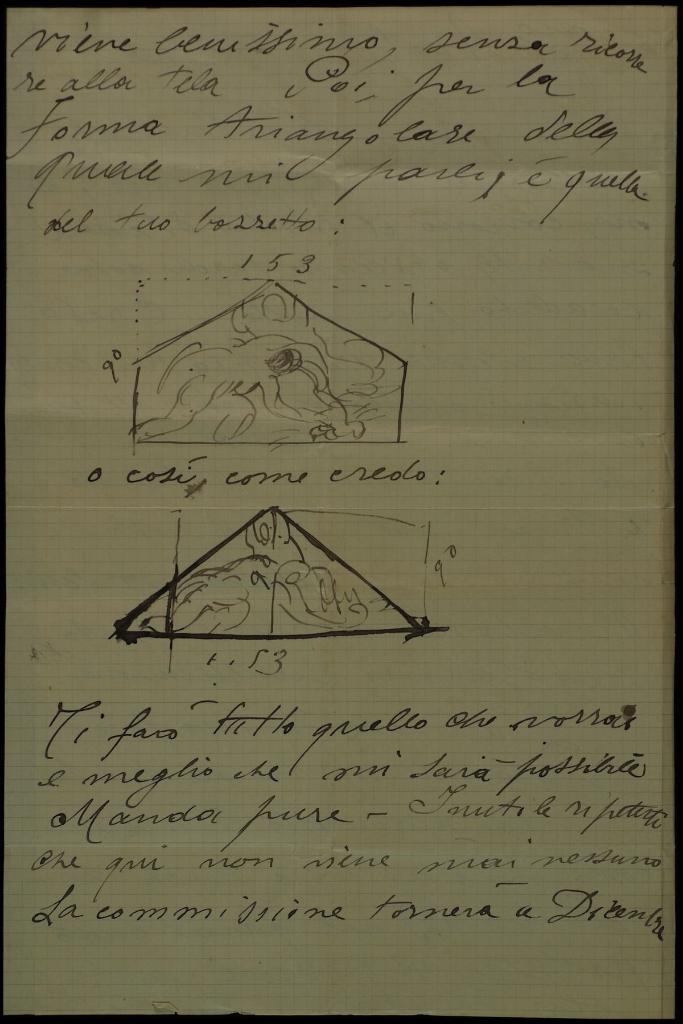 viene benissimo, senza ricorre
re alla tela Poi, per la
forma triangolare della
quale mi parli, è quella
del tuo bozzetto:
1 53
90
o così, come credo:
90
90
1.53
Ti farò tutto quello che vorrai
e meglio che mi sarà possibile
Manda pure - Inutile ripeterti
che qui non viene mai nessuno
La commissione tornerà a Dicembre